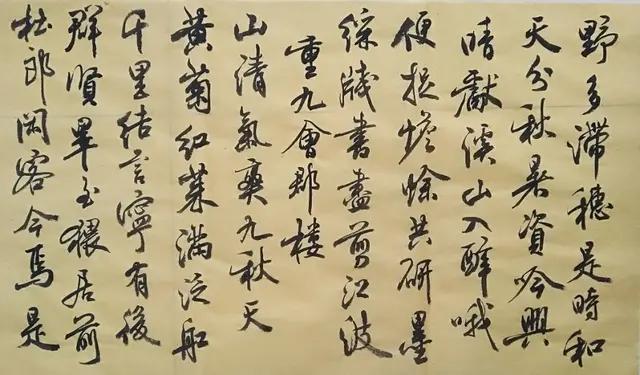 野多滯穗是時和
天分秋暑資吟興
晴獻溪山入醉哦
便捉蟾蜍共研墨
綵牋書盡剪江波
重九會郡樓
山清氣爽九秋天
黃菊紅茱滿泛船
千里結言寧有後
群賢畢至猥居前
杜郎閑客今焉是